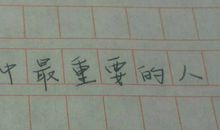 中最重要的人